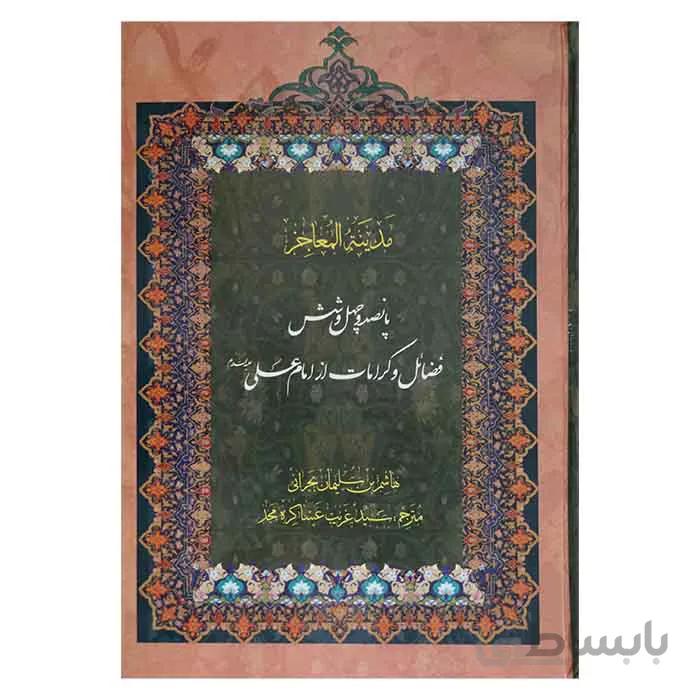 مدینة المعاجز
پانصد و چهل و شش
فضائل و کرامات از امام علی علیه‌السلام
هاشم بن سلیمان بحرانی
مترجم: سید غریب عساکره مجد